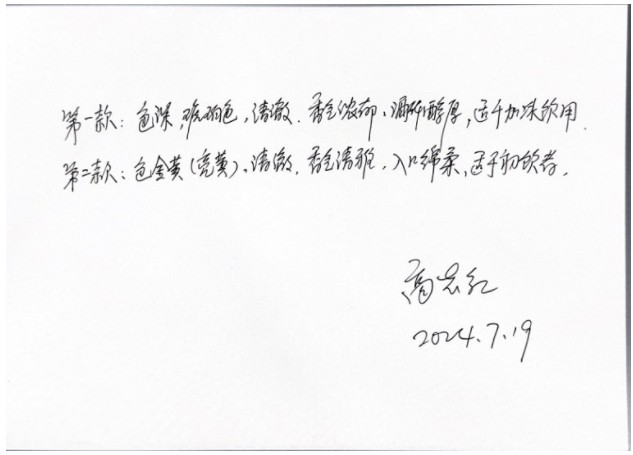 第一款：色深，琥珀色，清澈．香气浓郁、酒体醇厚，适于加冰饮用．
第二款：色金黄（亮黄）、清澈．香气清雅．入口绵柔，适于初饮者．
高
2024.7.19